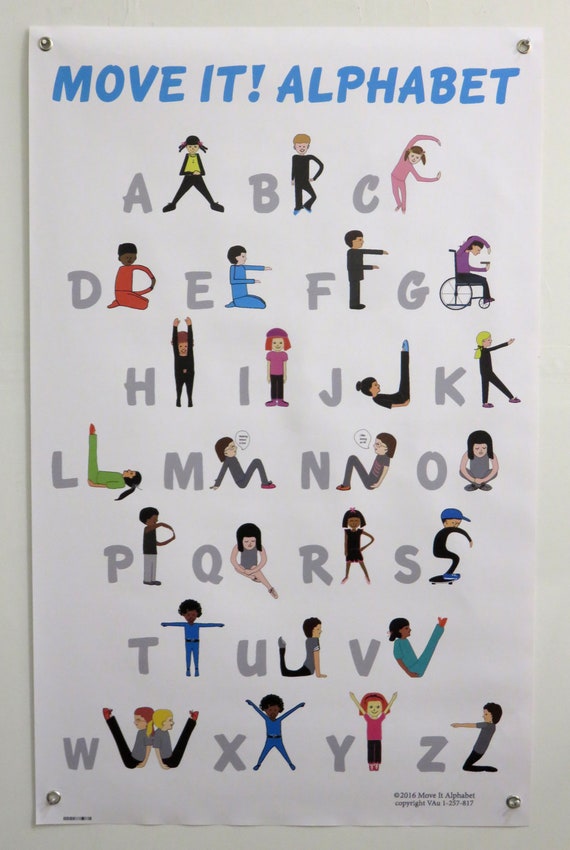 MOVE IT! ALPHABET
A B C
D E F G
H I J K
L M N O
P Q R S
T U V
W X Y Z
©2016 Move It Alphabet
copyright VAu 1-257-817